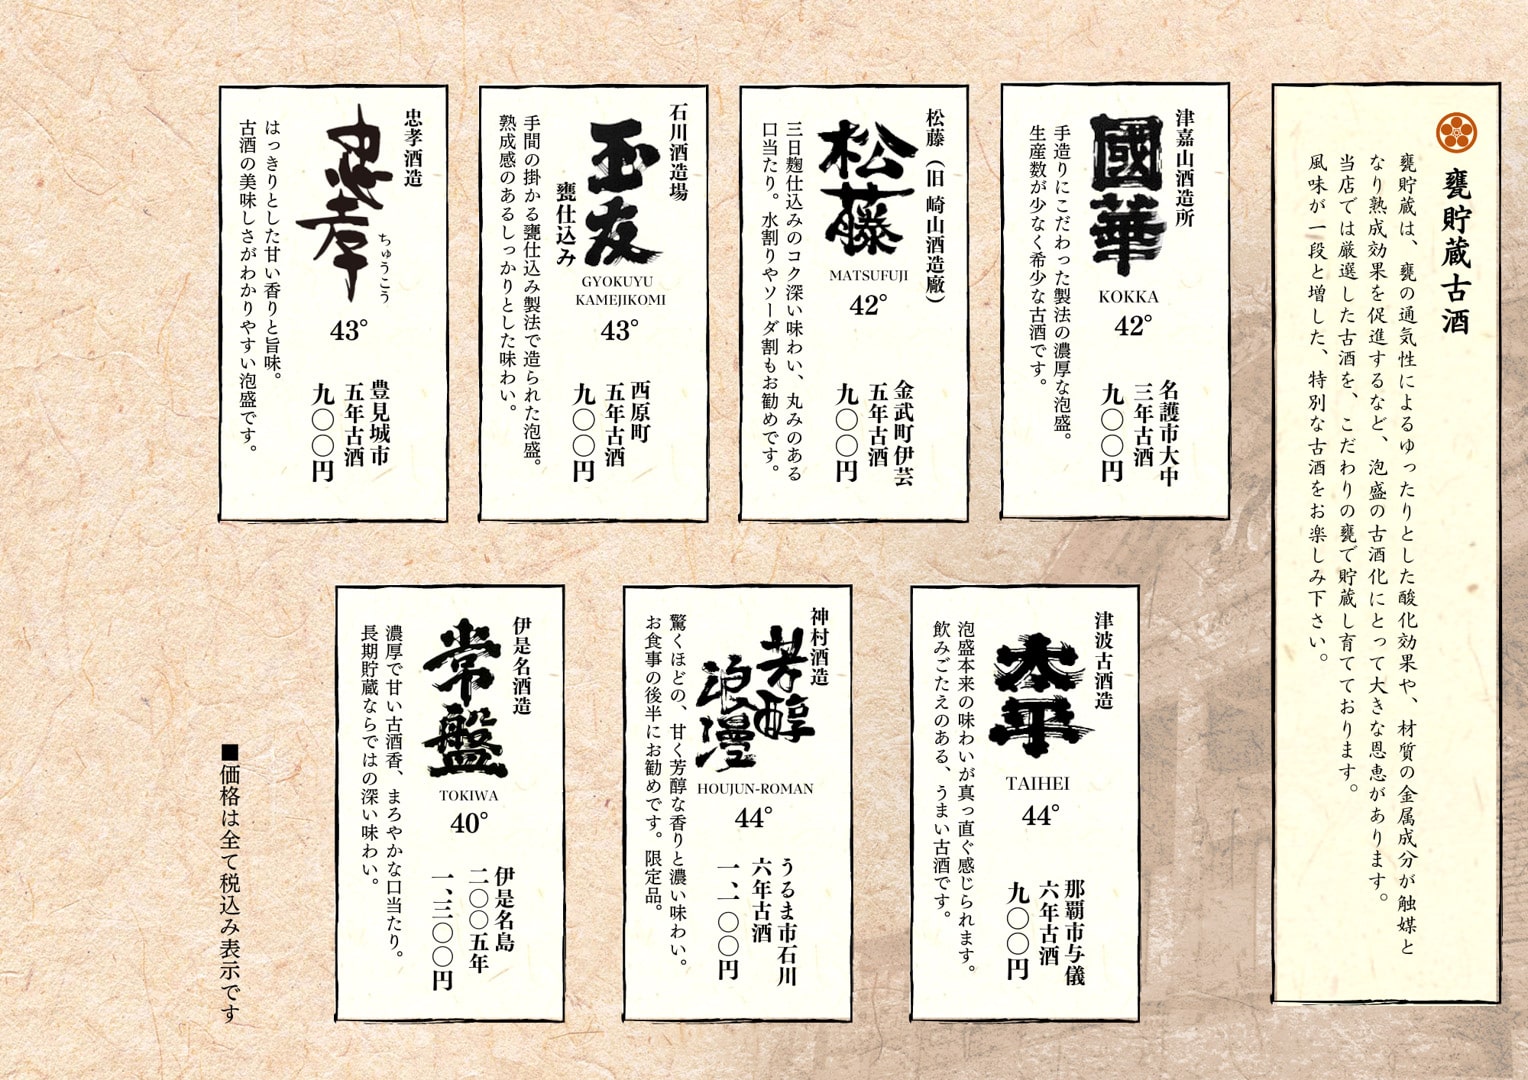 甕貯蔵古酒
甕貯蔵は、甕の通気性によるゆったりとした酸化効果や、材質の金属成分が触媒と
なり熟成効果を促進するなど、泡盛の古酒化にとって大きな恩恵があります。
当店では厳選した古酒を、こだわりの甕で貯蔵し育てております。
風味が一段と増した、特別な古酒をお楽しみ下さい。
津嘉山酒造所
國華
KOKKA
42°
名護市大中
三年古酒
九〇〇円
手造りにこだわった製法の濃厚な泡盛。
生産数が少なく希少な古酒です。
松藤（旧 崎山酒造廠）
松藤
MATSUFUJI
42°
金武町伊芸
五年古酒
九〇〇円
三日麹仕込みのコク深い味わい、丸みのある
口当たり。水割りやソーダ割もお勧めです。
石川酒造場
玉友
甕仕込み
GYOKUYU
KAMEJIKOMI
43°
西原町
五年古酒
九〇〇円
手間の掛かる甕仕込み製法で造られた泡盛。
熟成感のあるしっかりとした味わい。
忠孝酒造
忠孝
ちゅうこう
43°
豊見城市
五年古酒
九〇〇円
はっきりとした甘い香りと旨味。
古酒の美味しさがわかりやすい泡盛です。
津波古酒造
太平
TAIHEI
44°
那覇市与儀
六年古酒
九〇〇円
泡盛本来の味わいが真っ直ぐ感じられます。
飲みごたえのある、うまい古酒です。
神村酒造
芳醇
浪漫
HOUJUN-ROMAN
44°
うるま市石川
六年古酒
一、一〇〇円
驚くほどの、甘く芳醇な香りと濃い味わい。
お食事の後半にお勧めです。限定品。
伊是名酒造
常盤
TOKIWA
40°
伊是名島
二〇〇五年
一、三〇〇円
濃厚で甘い古酒香、まろやかな口当たり。
長期貯蔵ならではの深い味わい。
■価格は全て税込み表示です